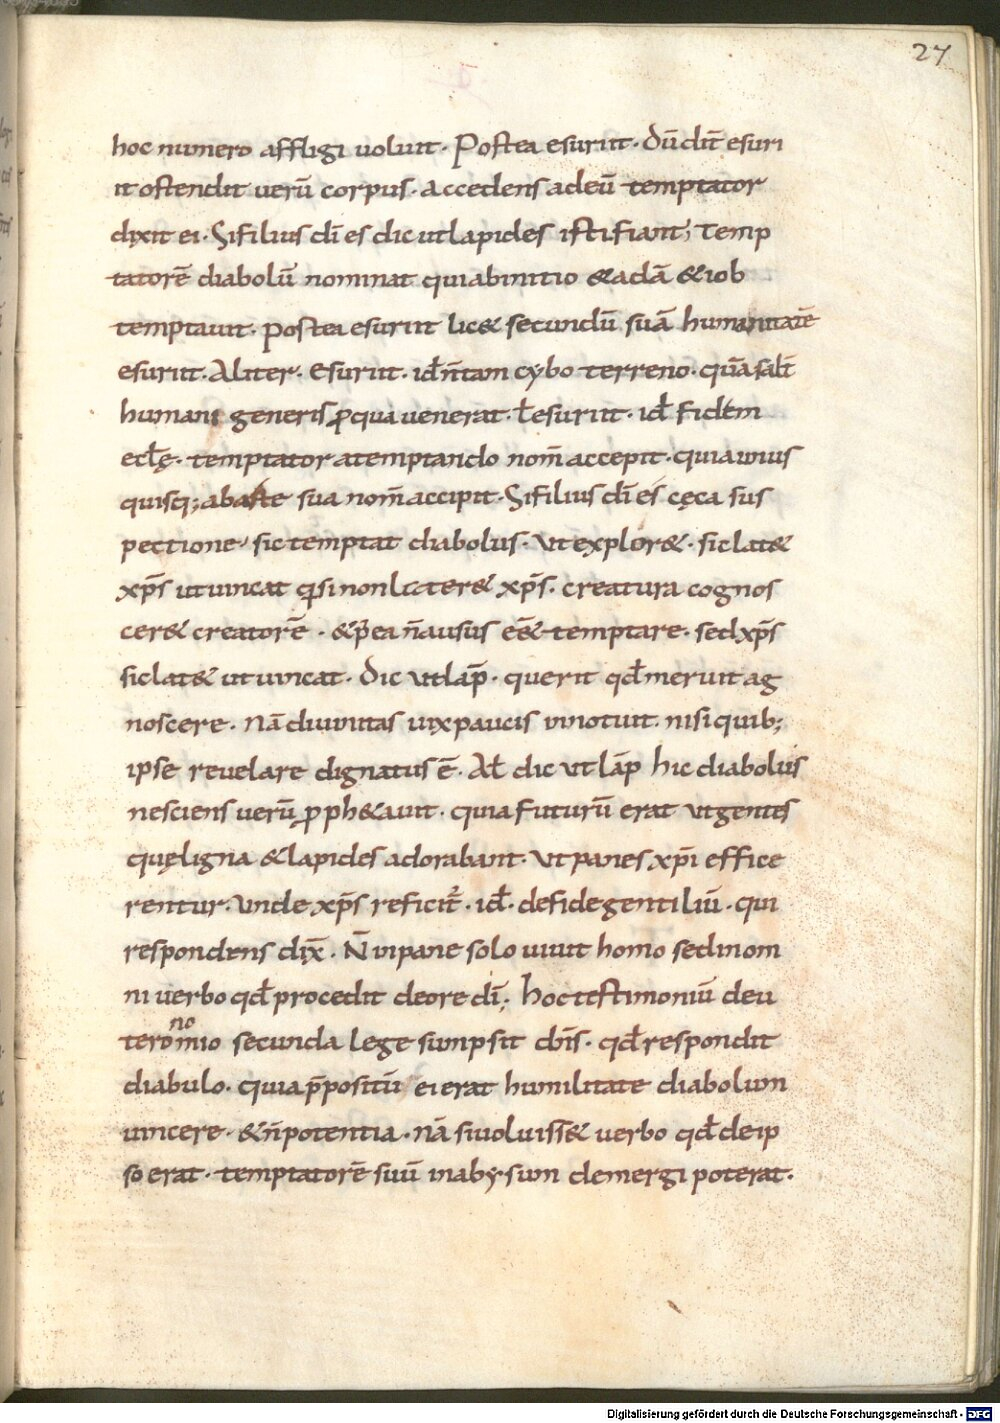 27
hoc numero affligi uoluit · Postea esuriit · Dū dīt esuri
it ostendit uerū corpus · accedens adeū temptator
dixit ei · Si filius dī es dic ut lapides isti fiant; Temp
tatorē diabolū nominat qui abinitio & adā & iob
temptauit · postea esuriit lic& secundū suā humanitatē
esuriit · Aliter · Esuriit · id ñ tam cybo terreno · quā salt̄
humani generis ꝓ qua uenerat · ł esuriit · id fidem
eclę · temptator atemptando nom̄ accepit · quia unus
quisq; ab aste sua nom̄ accipit · Si filius dī es cęca sus
pectione sic temptat diabolus · Ut explor& · sic lat&
xp̄s ut uincat q̄si non later& xp̄s · creatura cognos
cer& creatorē · & p̄ea ñ ausus eē& temptare · sed xp̄s
sic lat& ut uincat · Dic ut lap̄ · querit qđ meruit ag
noscere · Nā diuinitas uix paucis innotuit · nisi quib;
ipse reuelare dignatus ē · Ał dic ut lap̄ hic diabolus
nesciens uerū ꝓph&auit · quia futurū erat ut gentes
quę ligna & lapides adorabant · Ut panes xp̄i effice
rentur · Unde xp̄s reficit᷑ · id · de fide gentiliū · qui
respondens dix̄ · N̄ in pane solo uiuit homo sed in om
ni uerbo qđ procedit de ore dī; hoc testimoniū deu
teromio secunda lege sumpsit dn̄s · qđ respondit
no
diabulo · quia p̄positū ei erat humilitate diabolum
uincere · & ñ potentia · nā si uoluiss& uerbo qđ de ip
so erat · temptatorē suū in abysum demergi poterat ·
Digitalisierung gefördert durch die Deutsche Forschungsgemeinschaft - DFG